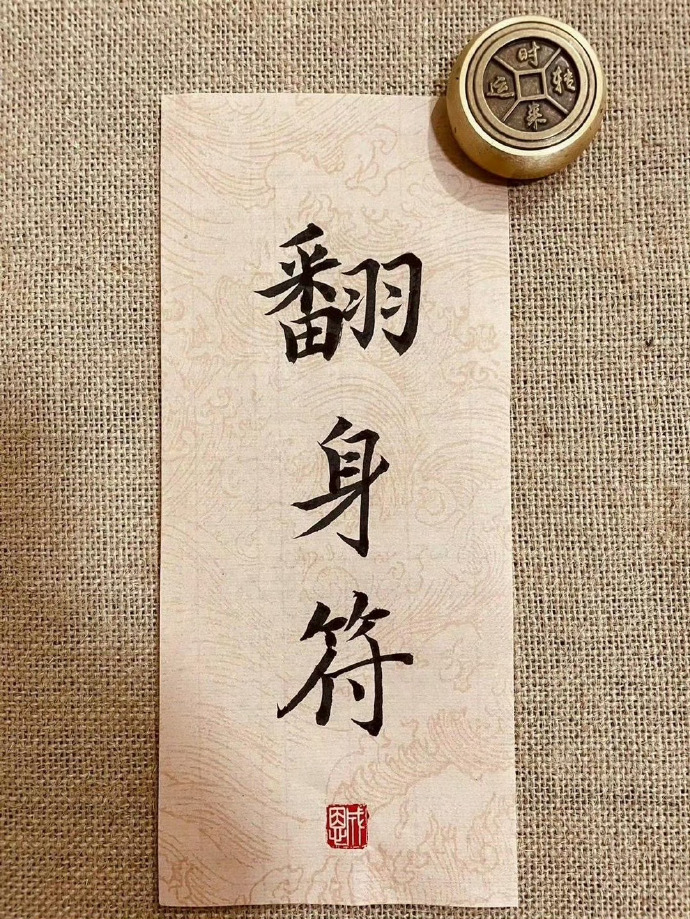 时来运转
翻身符